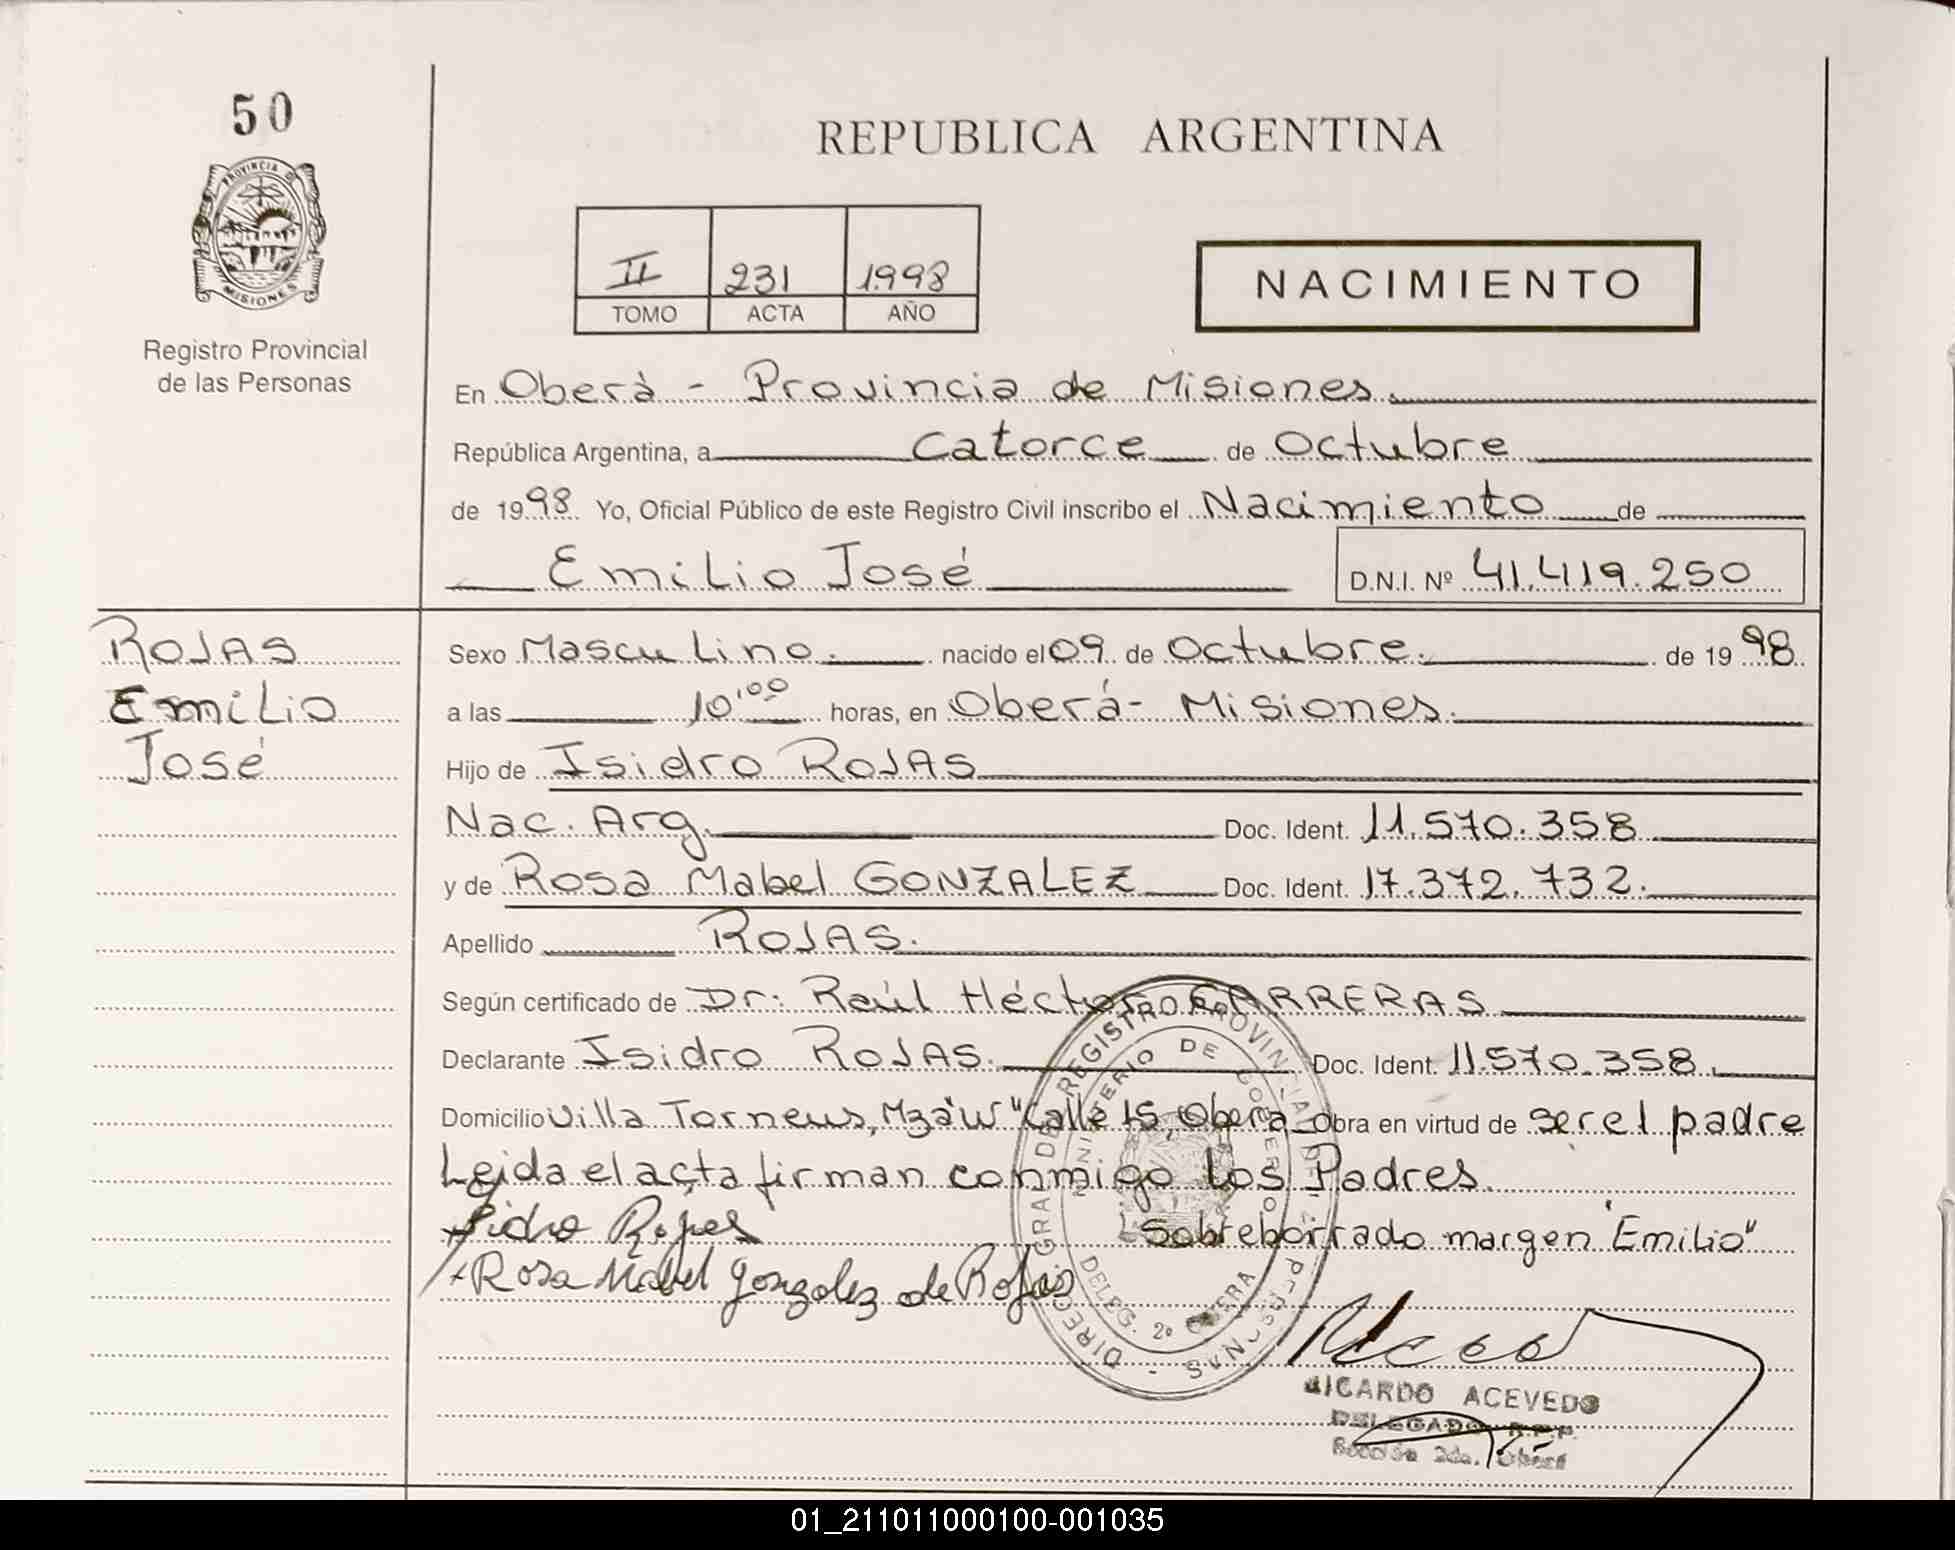 50
PROVINCIA D
MISIONES
Registro Provincial
de las Personas
REPUBLICA ARGENTINA
II 231 1998
TOMO ACTA AÑO
NACIMIENTO
En Oberà - Provincia de Misiones.
República Argentina, a Catorce de Octubre
de 1998. Yo, Oficial Público de este Registro Civil inscribo el Nacimiento de
Emilio José D.N.I. Nº 41.419.250
ROJAS
Emilio
José
Sexo Masculino. nacido el 09 de Octubre. de 1998.
a las 10'00 horas, en Oberá- Misiones.
Hijo de Isidro ROJAS
Nac. Arg. Doc. Ident. 11.570.358
y de Rosa Mabel GONZALEZ Doc. Ident. 17.372.732.
Apellido ROJAS.
Según certificado de Dr: Raúl Héctor CARRERAS
Declarante Isidro ROJAS. Doc. Ident. 11.570.358.
Domicilio Villa Torneus, Mza"W" Calle 15, Oberá Obra en virtud de ser el padre
Leida el acta firman conmigo los Padres.
Sobreborrado margen "Emilio"
Rosa Mabel Gonzalez de Rojas
DIREC. GRAL DE REGISTRO PROVINCIAL DE PERSONAS -
MINISTERIO DE GOBIERNO
DELEG. 2º OBERA
RICARDO ACEVEDO
DELEGADO R.P.P.
Sección 2da. Oberá
01_211011000100-001035